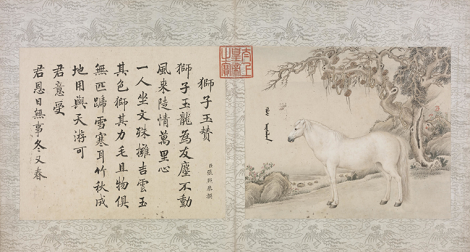 獅子玉贊
獅子玉龍為友塵不動
風來陸情萬里心
一人坐文殊擁吉雲玉
其色獅其力毛且物俱
無匹蹄雪寒耳竹秋成
地用與天游可
君意受
君恩日無事冬又春